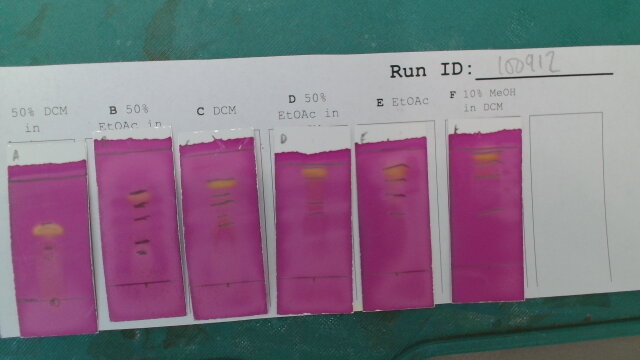 Run ID: 100912
50% DCM
in
B 50%
EtOAc in
C DCM
D 50%
EtOAc in
E EtOAc
F 10% MeOH
in DCM
A
D
E